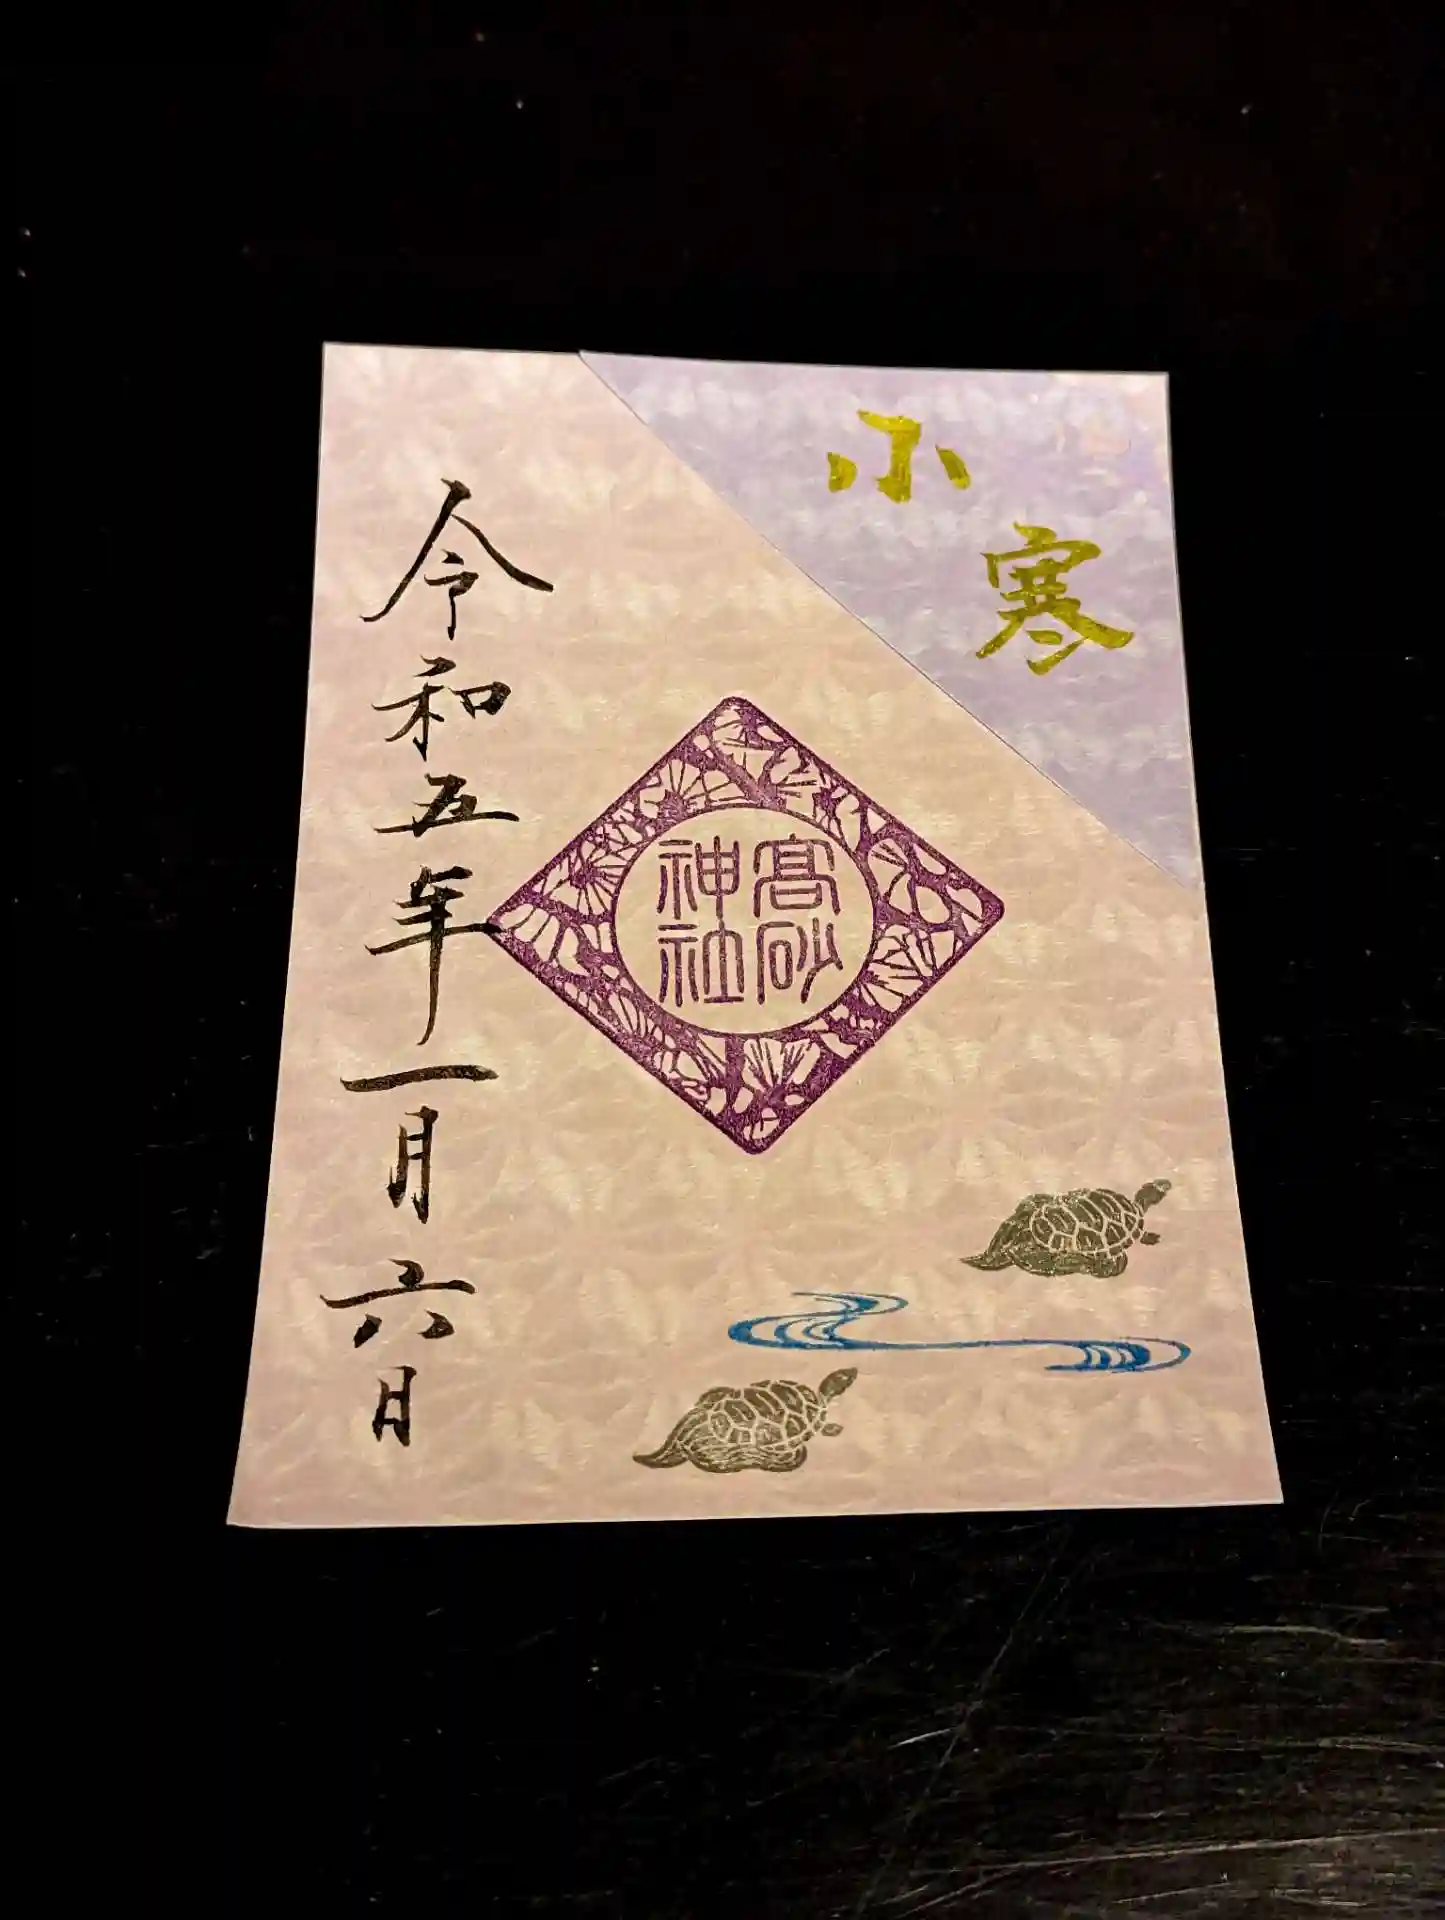 小寒
髙砂
神社
令和五年一月六日